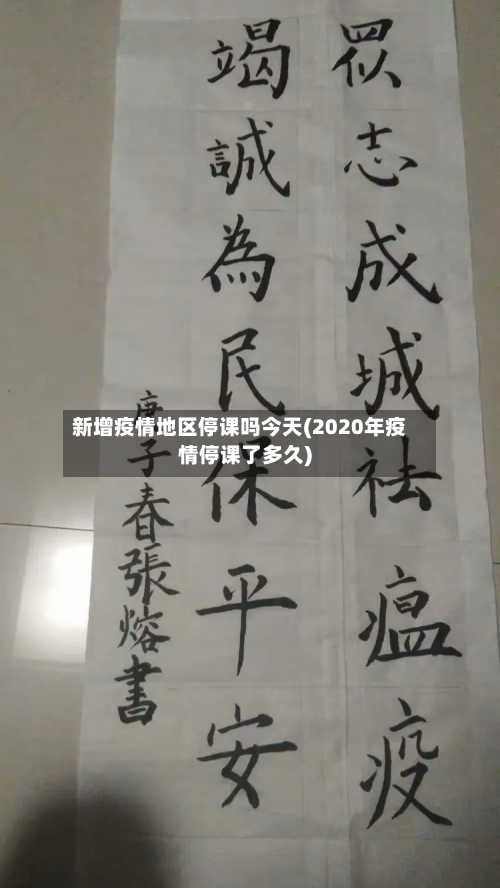 眾志成城祛瘟疫
竭誠為民保平安
庚子春張熔書
新增疫情地区停课吗今天(2020年疫
情停课了多久)